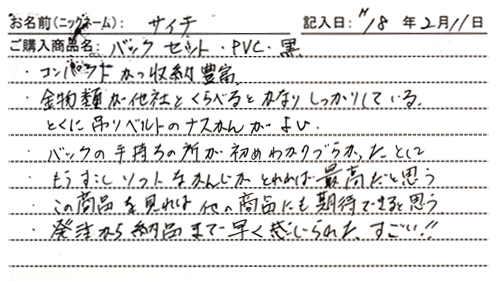 お名前(ニックネーム): サイチ 記入日: H18 年 2月11日
ご購入商品名: バック セット・PVC・黒
・コンパクトかつ収納豊富
・金物類が他社とくらべるとかなりしっかりしている。
とくに吊りベルトのナスかんがよい.
・バックの手持ちの所が初めわかりづらかったとして
もうすこしソフトなかんじがとれれば最高だと思う
・この商品を見れば他の商品にも期待できると思う
・発注から納品まで早く感じられた。すごい!!